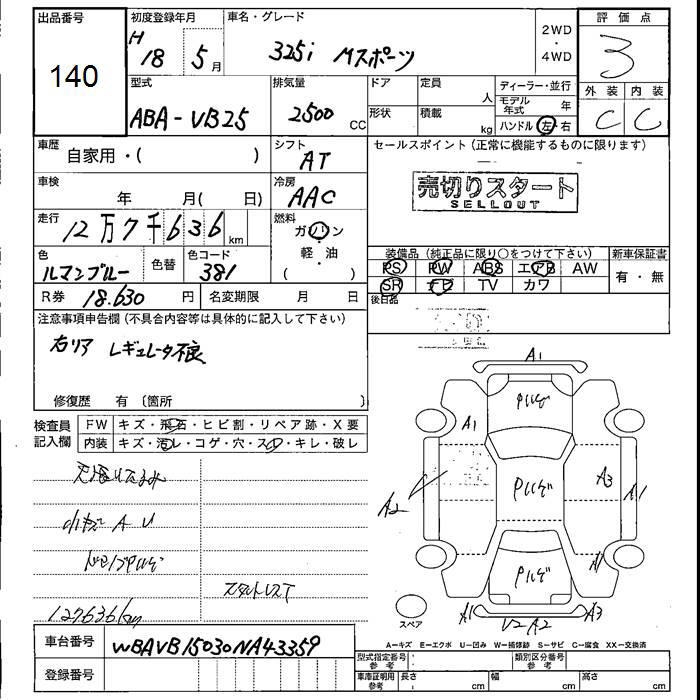 出品番号
140
初度登録年月
H 18 5月
車名・グレード
325i Mスポーツ
2WD
・
4WD
評価点
3
外装 内装
C C
型式
ABA-VB25
排気量
2500 CC
ドア
定員 人
形状
積載 kg
ディーラー・並行
モデル年式 年
ハンドル 左・右
車歴
自家用・( )
シフト
AT
セールスポイント(正常に機能するものに限ります)
売切りスタート
SELLOUT
車検
年 月( 日)
冷房
AAC
走行
12万7千636 km
燃料
ガソリン
軽・油
( )
色
ルマンブルー
色替
色コード
381
装備品(純正品に限り○をつけて下さい)
新車保証書
PS PW ABS エアB AW
有・無
SR ナビ TV カワ
後日品
R券 18.630 円
名変期限 月 日
注意事項申告欄(不具合内容等は具体的に記入して下さい)
右リア レギュレータ不良
修復歴 有〔箇所 〕
検査員記入欄
FW キズ・飛石・ヒビ割・リペア跡・X要
内装 キズ・汚レ・コゲ・穴・スレ・キレ・破レ
天張りたるみ
小キズ A U
127636km
A1
A1
A2
A3
A1
A1
A1
U2-A2
A3
スペア
A=キズ E=エクボ U=凹み W=補修跡 S=サビ C=腐食 XX=交換済
車台番号
WBAVB15030NA43359
登録番号
型式指定番号 参考
類別区分番号 参考
車庫証明用 参考
長さ cm
幅 cm
高さ cm